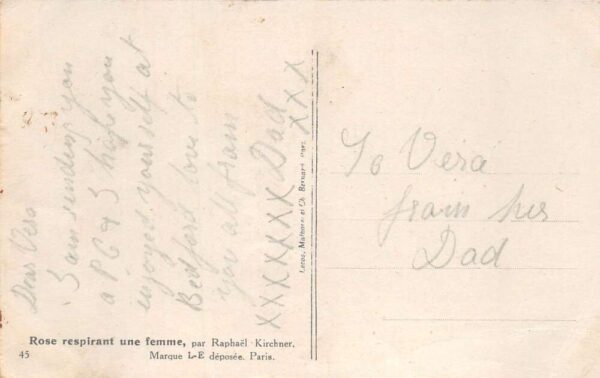 Dear Vera
I am sending you
a PC & I hope you
enjoyed yourself at
Bedford love to
you all from
XXXXXXX Dad
XXX
To Vera
from her
Dad
Rose respirant une femme, par Raphaël Kirchner.
45
Marque L-E déposée. Paris.